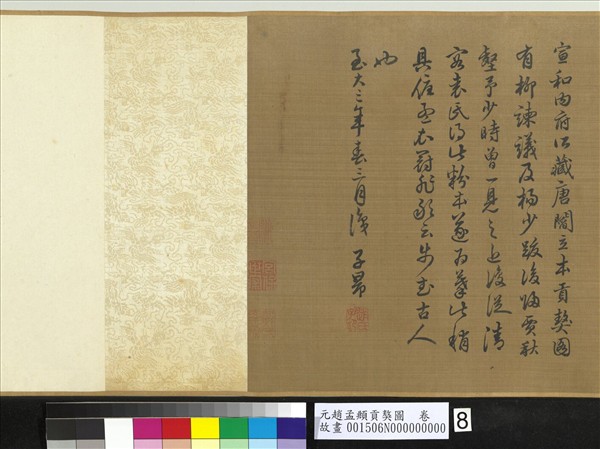 宣和內府所藏唐閻立本貢獒圖
有柳諫議及楊少跋後歸賈秋
壑予少時曾一見之近復從清
容袁氏得此粉本遂為摹此稍
具位置衣冠
古人
也
至大三年春三月 子昂
元趙孟頫貢獒圖 卷
故畫 001506N000000000
8